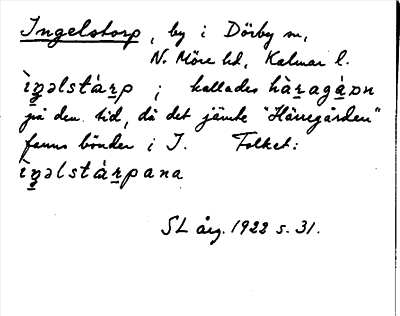 Ingelstorp, by i Dörby sn,
N. Möre hd, Kalmar l.
ìŋəlstárp ; kallades hàragáɒn
på den tid, då det jämte "Herregården"
fanns bönder i I. Folket:
ìŋəlstárpana
SL årg. 1922 s. 31.